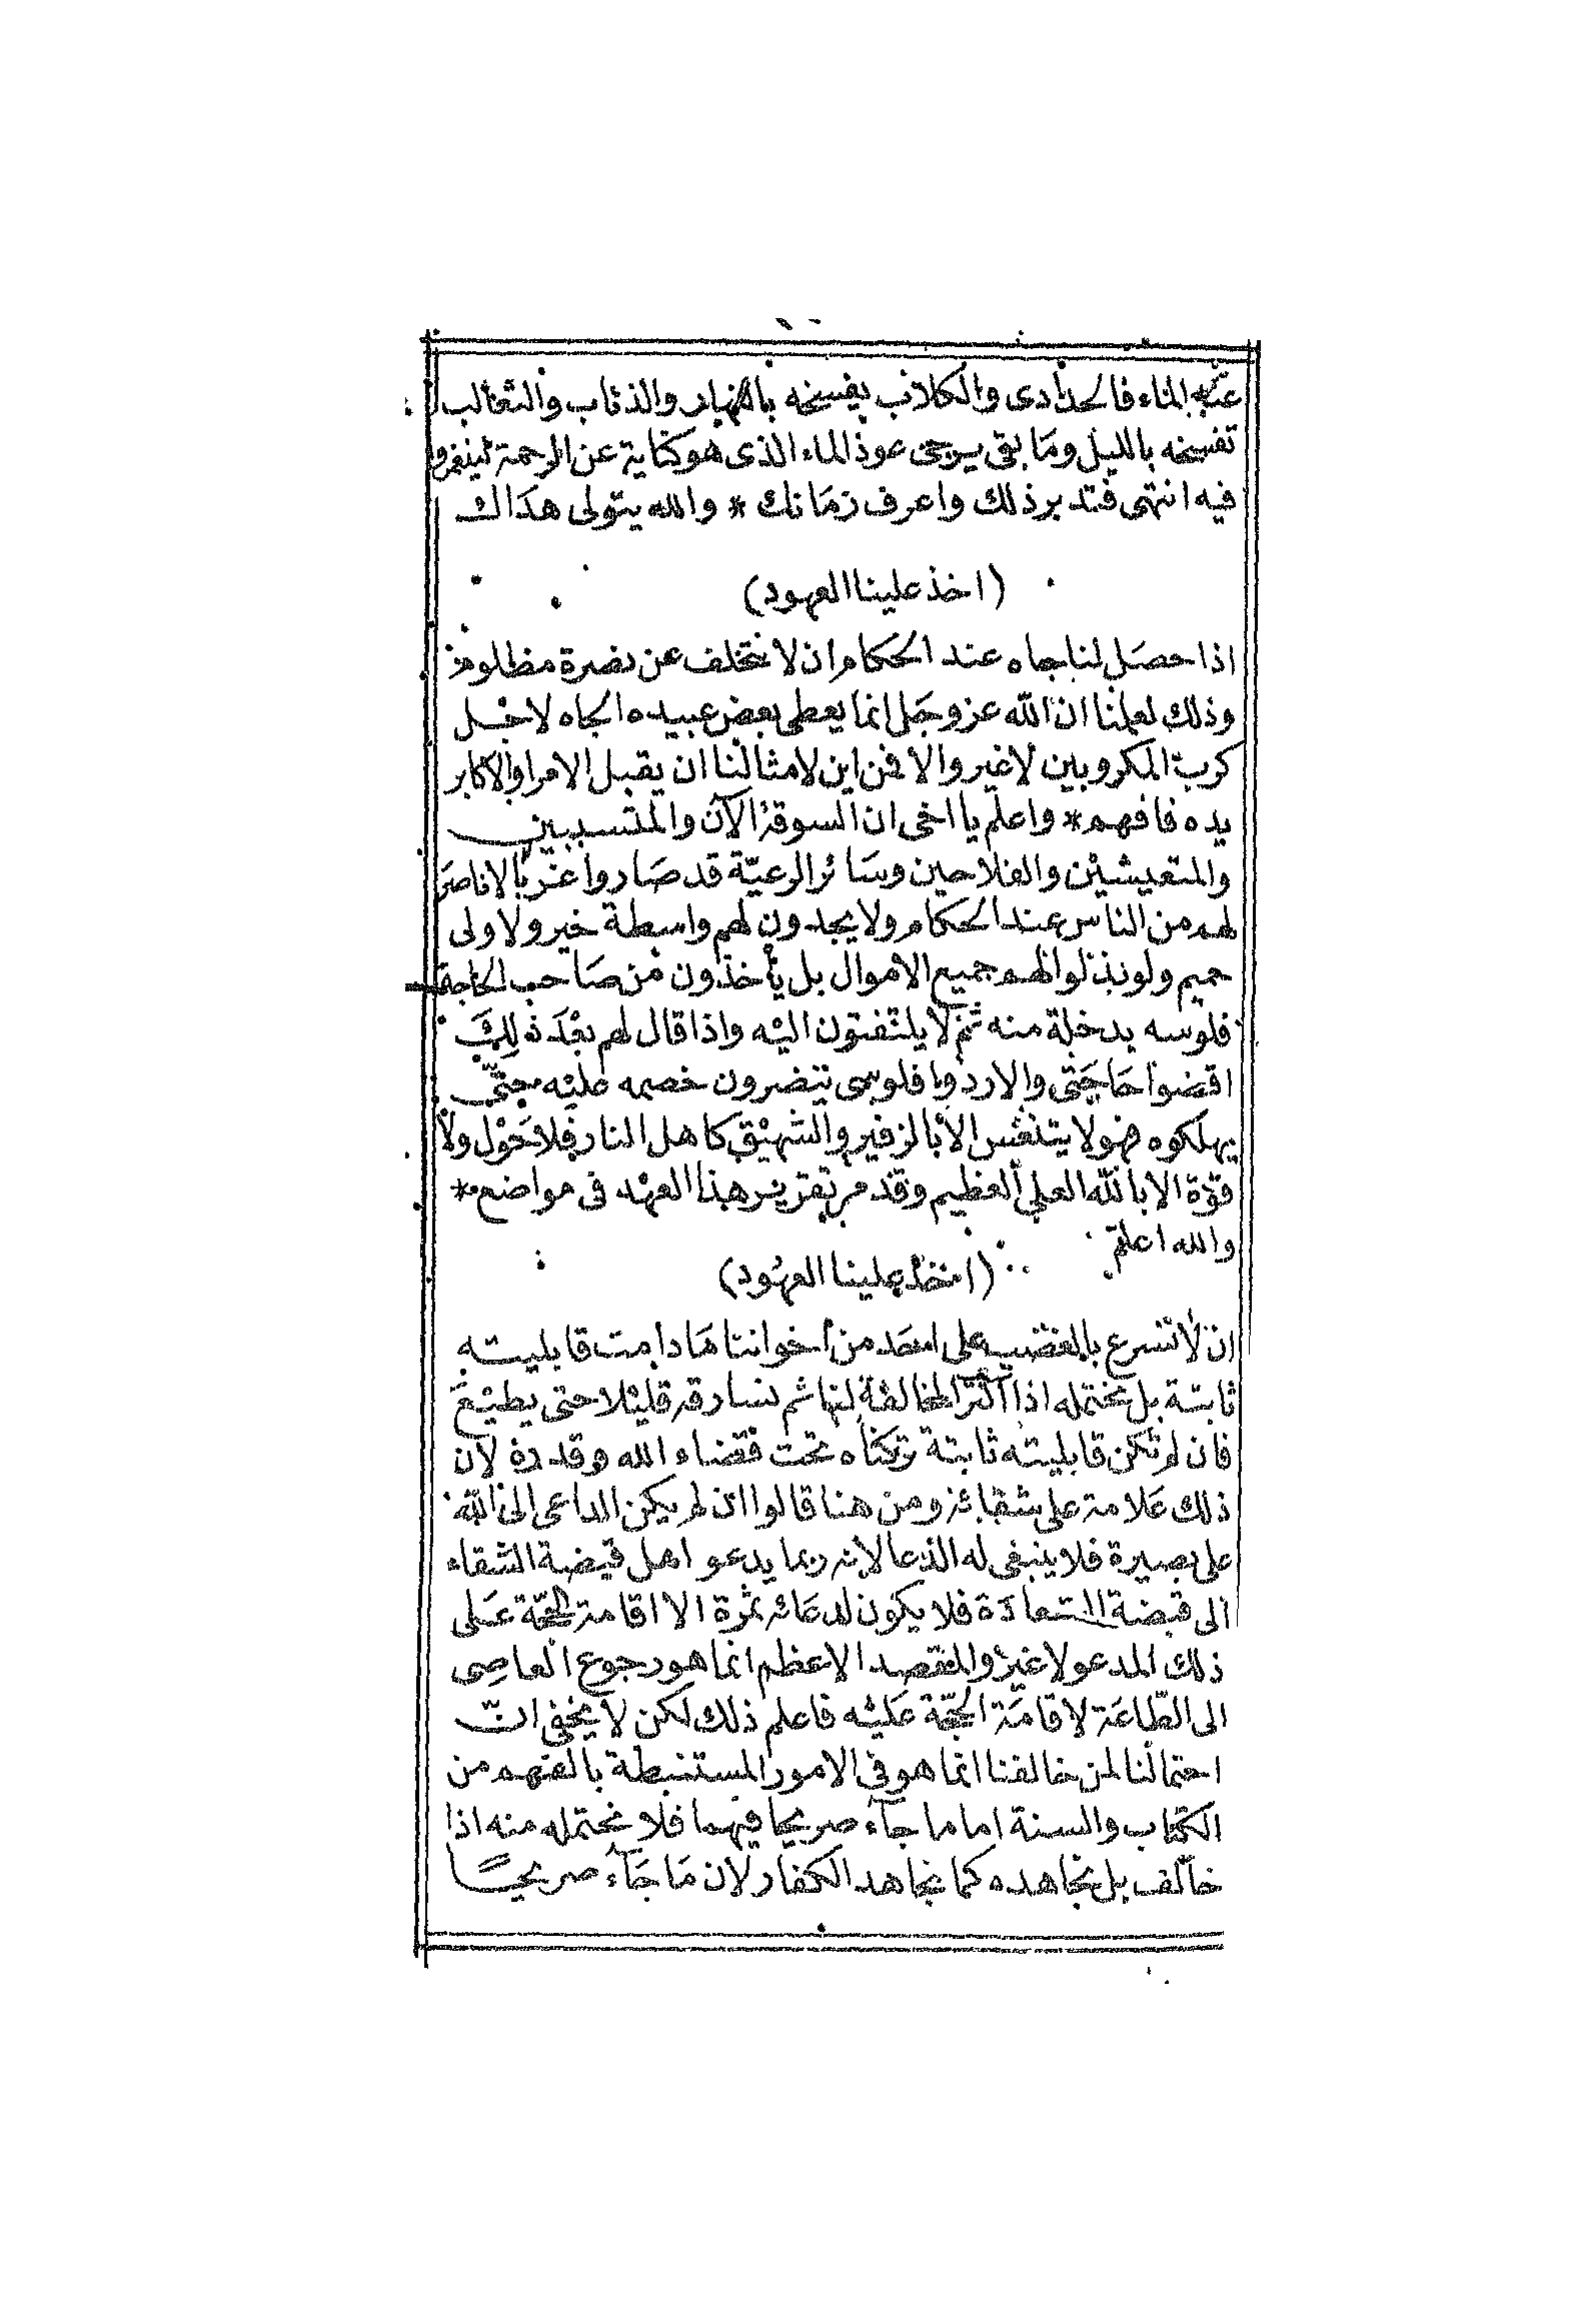 عنه الماء فالحدادى والكلاب يفسخه بالنهار والذئاب والثعالب
تفسخه بالليل وما بقى يرجى عود الماء الذى هو كناية عن الرحمة
فيه انتهى فتدبر ذلك واعرف زمانك * والله يتولى هداك
(اخذ علينا العهود)
اذا حصل لنا جاه عند الحكام ان لا نتخلف عن نصرة مظلوم
وذلك لعلمنا ان الله عز وجل انما يعطى بعض عبيده الجاه لاجل
كرب المكروبين لا غير والا فمن اين لامثالنا ان يقبل الامرا والاكابر
يده فافهم * واعلم يا اخى ان السوقة الآن والمتسببين
والمتعيشين والفلاحين وسائر الرعيّة قد صاروا غربا لا ناصر
لهم من الناس عند الحكام ولا يجدون لهم واسطة خير ولا ولى
حميم ولو بذلوا لهم جميع الاموال بل يأخذون من صاحب الحاجة
فلوسه بدخلة منه ثم لا يلتفتون اليه واذا قال لهم بعد ذلك
اقضوا حاجتى والا ردوا فلوسى ينصرون خصمه عليه حتى
يهلكوه فهو لا يتنفس الا بالزفير والشهيق كاهل النار فلا حول ولا
قوة الا بالله العلي العظيم وقد مر تقرير هذا العهد فى مواضع *
والله اعلم
(اخذ علينا العهود)
ان لا نسرع بالغضب على احد من اخواننا ما دامت قابليته
ثابتة بل نحتمله اذا اكثر المخالفة لنا ثم نسارقه قليلا حتى يطيع
فان لم تكن قابليته ثابتة تركناه تحت قضاء الله وقدره لان
ذلك علامة على شقائه ومن هنا قالوا ان لم يكن الداعى الى الله
على بصيرة فلا ينبغى له الدعا لانه ربما يدعو اهل قبضة الشقاء
الى قبضة السعادة فلا يكون لدعائه ثمرة الا اقامة الحجة على
ذلك المدعو لا غير والمقصد الاعظم انما هو رجوع العاصى
الى الطاعة لا قامة الحجّة عليه فاعلم ذلك لكن لا يخفى انّ
احتمالنا لمن خالفنا انما هو فى الامور المستنبطة بالفهم من
الكتاب والسنة اما ما جآء صريحا فيهما فلا نحتمله منه اذا
خالف بل نجاهده كما نجاهد الكفار لان ما جآء صريحًا